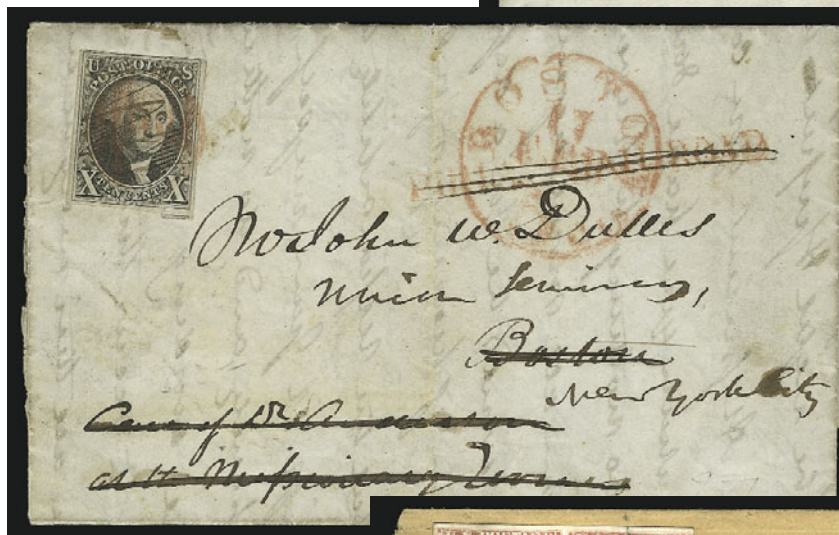 U S
POST OFFICE
X TEN CENTS X
BOSTON
17
RAILROAD
John W. Dulles
Union Seminary,
Boston
New York City
Care of Dr. Anderson
at the Missionary Rooms